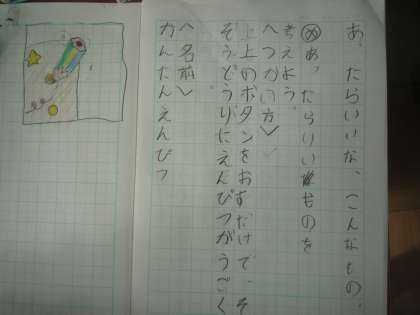 あ、たらいいな、こんなもの、
めあ、たらいいものを
考えよう。
〈つかい方〉
上のボタンをおすだけで、そ
そうぞうりにえんぴつがうごく
〈名前〉
かんたんえんぴつ